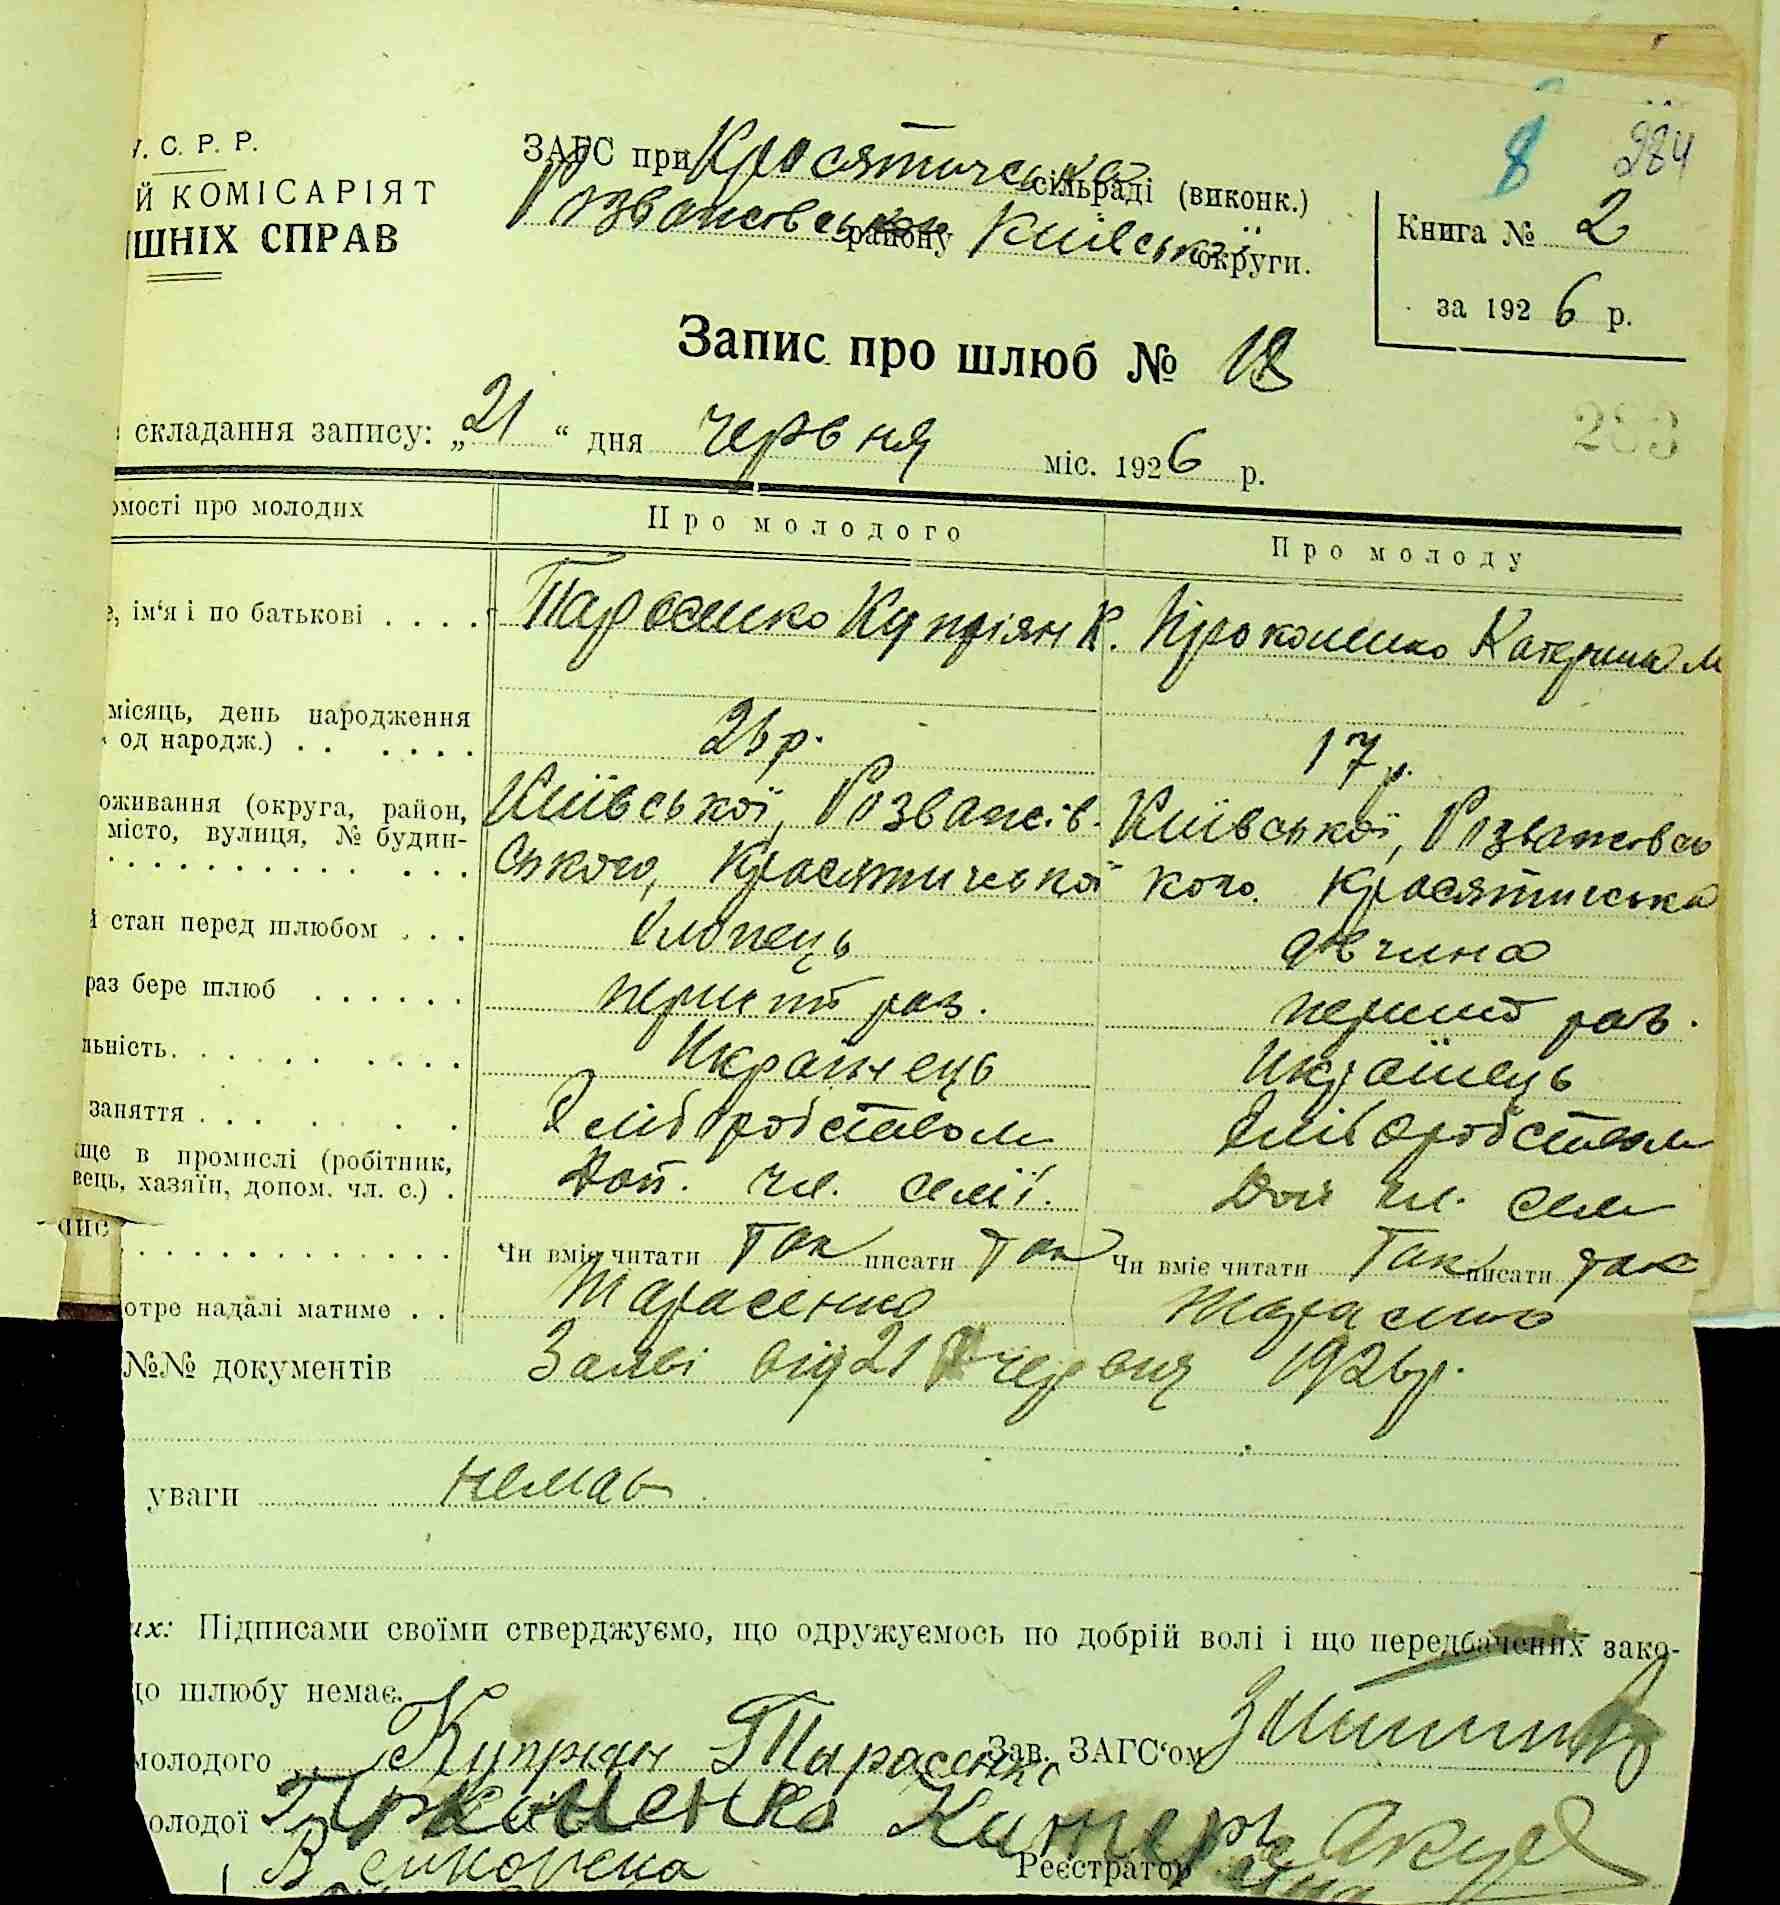 У. С. Р. Р.
Й КОМІСАРІЯТ
ШНІХ СПРАВ
ЗАГС при Красятичська сільраді (виконк.)
Розважовськ району Київської округи.
8 284
Книга № 2
за 1926 р.
Запис про шлюб № 18
складання запису: „21“ дня червня міс. 1926 р.
283
омості про молодих Про молодого Про молоду
е, ім‘я і по батькові . . . . Тарасенко Купріян К. Прокопенко Катерина М
місяць, день народження
од народж.) . . . . . . 26 р. 17 р.
оживання (округа, район, Київської, Розважів- Київської, Розважовсь
місто, вулиця, № будин- ського, Красятичської кого. Красятичська
і стан перед шлюбом . . . Хлопець дівчина
раз бере шлюб . . . . . . перший раз. перший раз.
льність. . . . . . . . . . Українець Українець
заняття . . . . . . . Хліборобством Хліборобством
ще в промислі (робітник,
вець, хазяїн, допом. чл. с.) . Доп. чл. семії. Доп чл. сем
Чи вміє читати Так писати Так Чи вміє читати Так писати так
отре надалі матиме . . Тарасенко Тарасенко
№№ документів Заяві від 21 червня 1926 р.
уваги немає
их: Підписами своїми стверджуємо, що одружуємось по добрій волі і що передбачених зако-
до шлюбу немає.
молодого Куприян Тарасенко Зав. ЗАГС‘ом
олодої Катер
Реєстратор